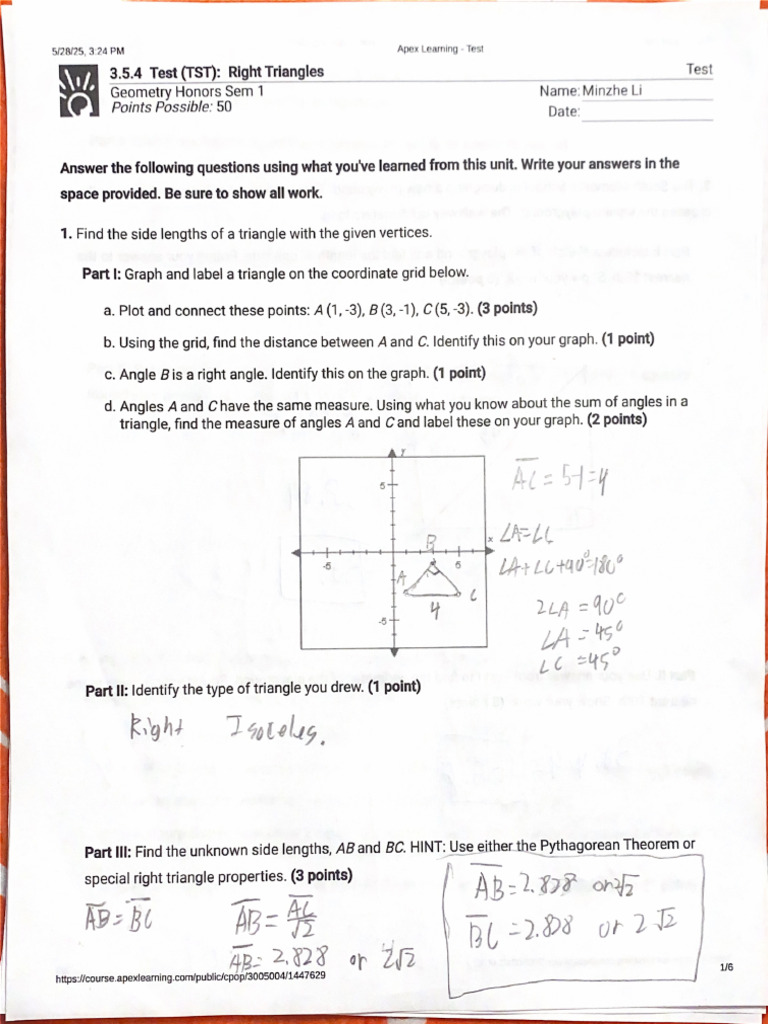 5/28/25, 3:24 PM
Apex Learning - Test
3.5.4 Test (TST): Right Triangles
Test
Geometry Honors Sem 1
Name: Minzhe Li
Points Possible: 50
Date:
Answer the following questions using what you've learned from this unit. Write your answers in the
space provided. Be sure to show all work.
1. Find the side lengths of a triangle with the given vertices.
Part I: Graph and label a triangle on the coordinate grid below.
a. Plot and connect these points: A (1, -3), B (3, -1), C (5, -3). (3 points)
b. Using the grid, find the distance between A and C. Identify this on your graph. (1 point)
c. Angle B is a right angle. Identify this on the graph. (1 point)
d. Angles A and C have the same measure. Using what you know about the sum of angles in a
triangle, find the measure of angles A and C and label these on your graph. (2 points)
y
5
x
-5
5
-5
B
A
C
4
AC = 5-1=4
∠A=∠C
∠A+∠C+90°=180°
2∠A = 90°
∠A = 45°
∠C = 45°
Part II: Identify the type of triangle you drew. (1 point)
Right Isoceles.
Part III: Find the unknown side lengths, AB and BC. HINT: Use either the Pythagorean Theorem or
special right triangle properties. (3 points)
AB = BC
AB = AC/√2
AB = 2.828 or 2√2
AB = 2.828 or 2√2
BC = 2.828 or 2√2
1/6
https://course.apexlearning.com/public/cpop/3005004/1447629